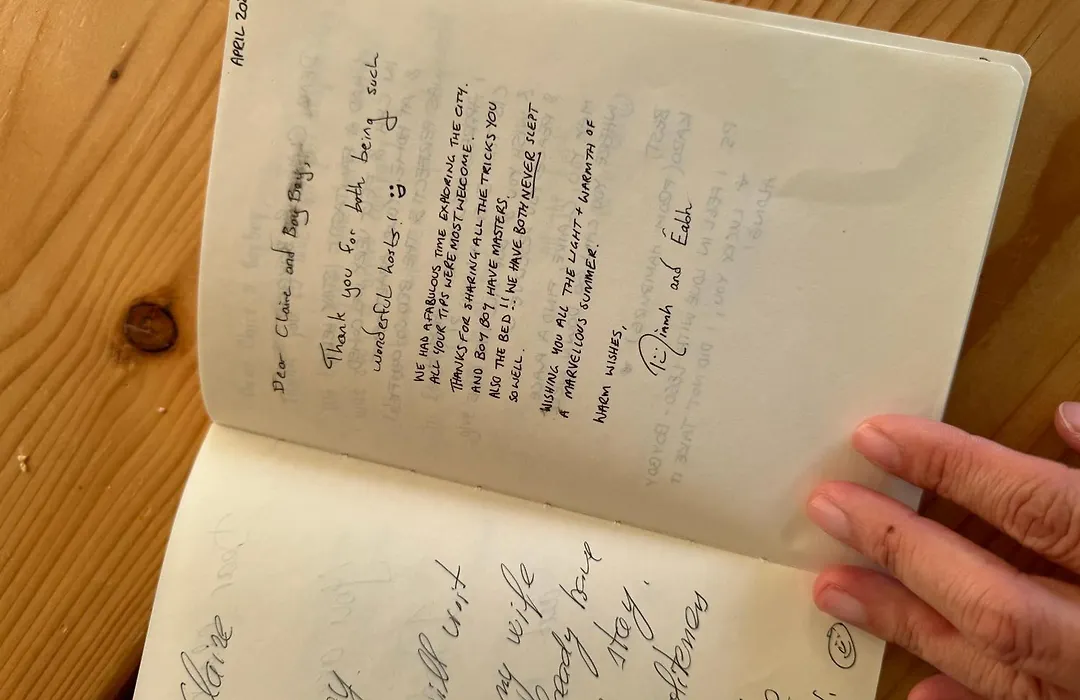 APRIL
Dear Claire and Boy Boy,
Thank you for both being such
wonderful hosts! :)
WE HAD A FABULOUS TIME EXPLORING THE CITY.
ALL YOUR TIPS WERE MOST WELCOME.
THANKS FOR SHARING ALL THE TRICKS YOU
AND BOY BOY HAVE MASTERS.
ALSO THE BED !! WE HAVE BOTH NEVER SLEPT
SO WELL.
WISHING YOU ALL THE LIGHT + WARMTH OF
A MARVELLOUS SUMMER.
WARM WISHES,
and
Claire
wife
stay.